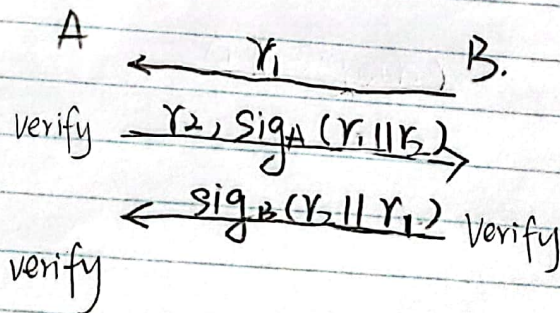 A
r₁ B.
verify r₂, sig_A (r₁ || r₂)
sig_B (r₂ || r₁) Verify
verify